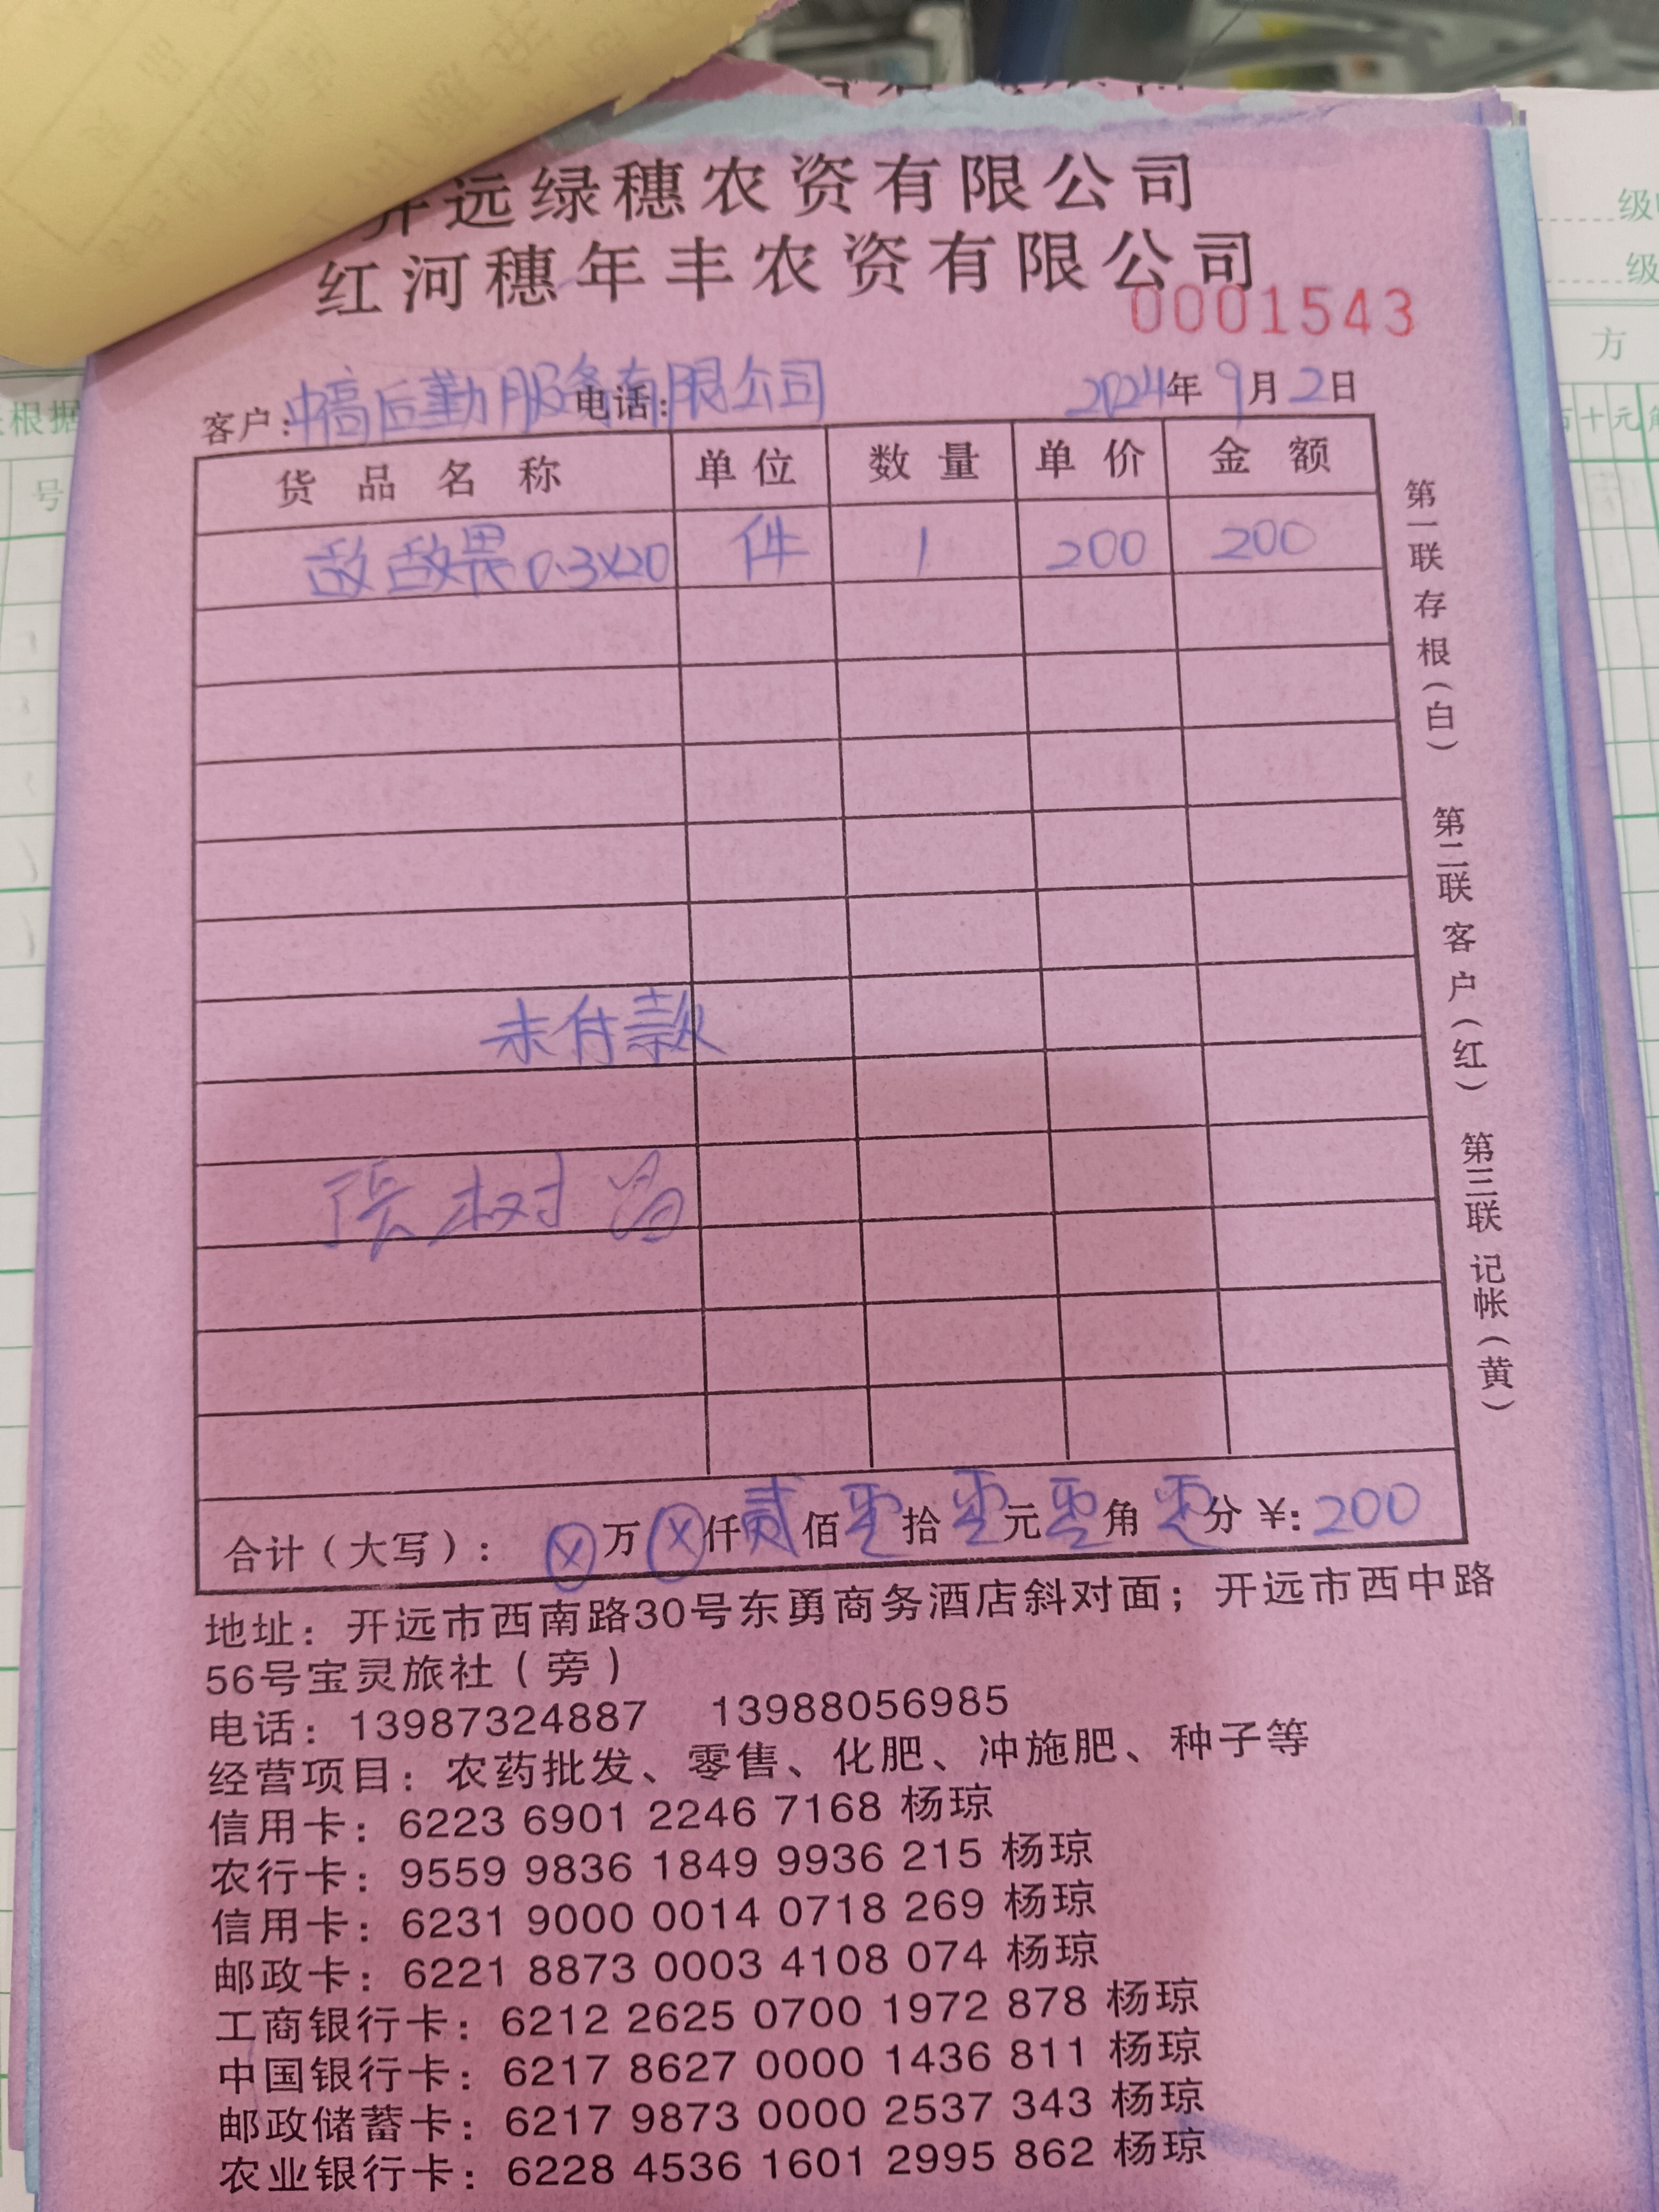 开远绿穗农资有限公司
红河穗年丰农资有限公司
0001543
客户：中高后勤服务有限公司 电话： 2024年9月2日
货品名称 单位 数量 单价 金额
敌敌畏0.3×20 件 1 200 200
未付款
张树
合计（大写）： ⓧ万ⓧ仟贰佰零拾零元零角零分 ¥：200
第一联存根（白） 第二联客户（红） 第三联记帐（黄）
地址：开远市西南路30号东勇商务酒店斜对面；开远市西中路
56号宝灵旅社（旁）
电话：13987324887 13988056985
经营项目：农药批发、零售、化肥、冲施肥、种子等
信用卡：6223 6901 2246 7168 杨琼
农行卡：9559 9836 1849 9936 215 杨琼
信用卡：6231 9000 0014 0718 269 杨琼
邮政卡：6221 8873 0003 4108 074 杨琼
工商银行卡：6212 2625 0700 1972 878 杨琼
中国银行卡：6217 8627 0000 1436 811 杨琼
邮政储蓄卡：6217 9873 0000 2537 343 杨琼
农业银行卡：6228 4536 1601 2995 862 杨琼